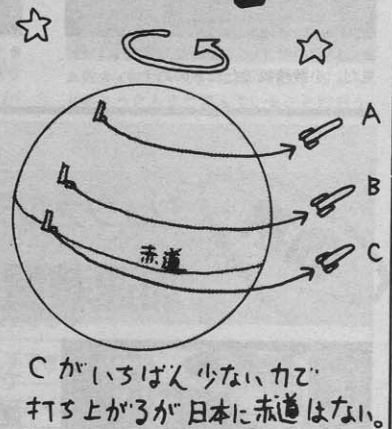 A
B
C
赤道
Cがいちばん少ない力で
打ち上がるが日本に赤道はない。